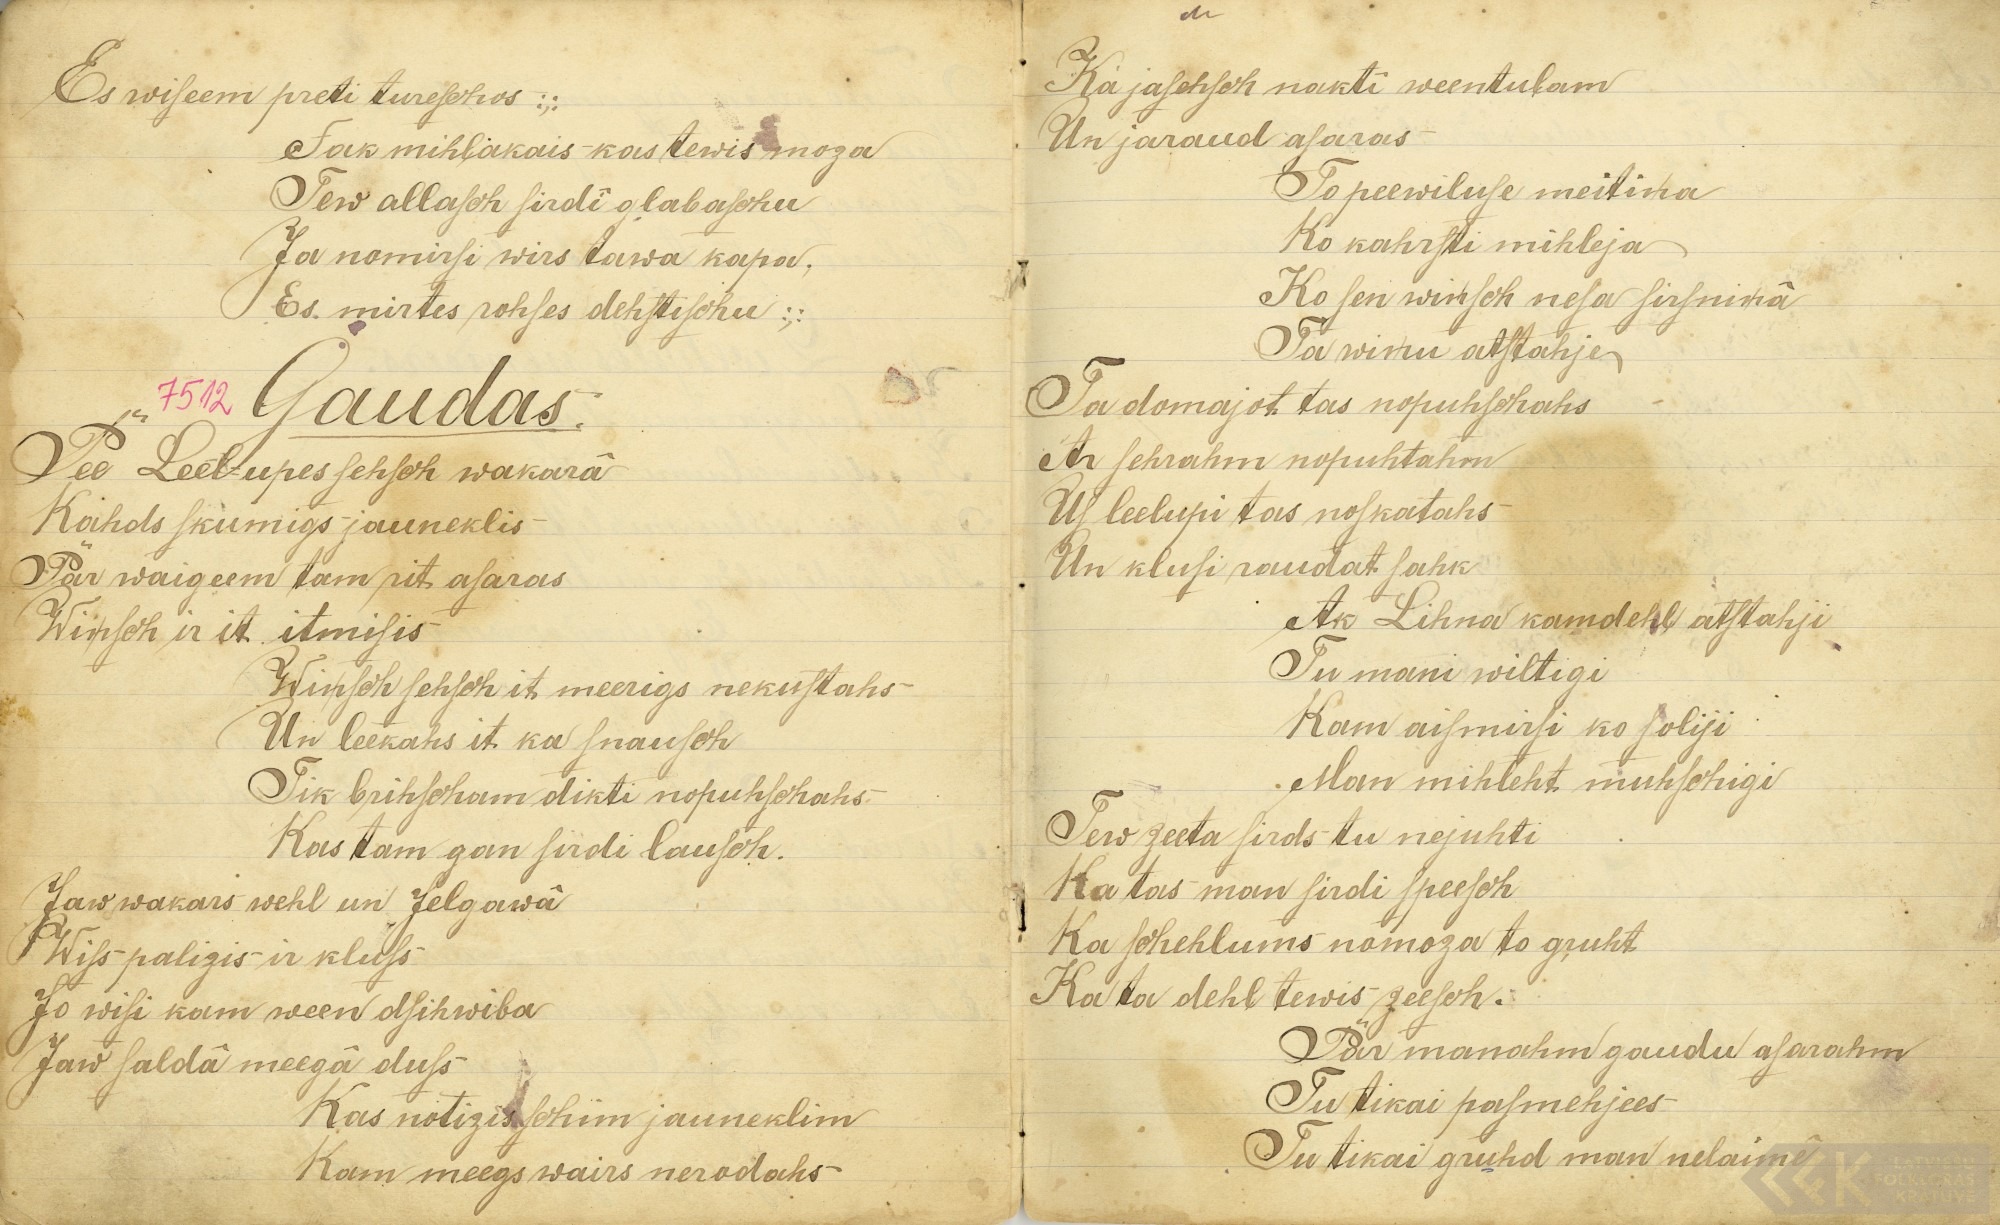 Es wiseem preti tureschos :;:
Sak mihļakais kas tewis moza
Tew allasch sirdî glabaschu
Ja nomirsi wirs tawa kapa,
Es mirtes rohses dehstischu :;:
7512 Gaudas.
Pee Leel-upes sehsch wakarâ
Kahds skumigs jauneklis
Pär waigeem tam rit asaras
Wiņsch ir it itmisis
Wiņsch sehsch it meerigs nekustahs
Un leekahs it ka snausch
Tik brihscham dikti nopuhschahs
Kas tam gan sirdi lausch.
Jaw wakars wehl un Jelgawâ
Wiss palizis ir kluss
Jo wisi kam ween dsihwiba
Jaw saldâ meegâ duss
Kas notizis schim jauneklim
Kam meegs wairs nerodahs
Ka jasehsch naktî weentulam
Un jaraud asaras
To peewiluse meitiņa
Ko kahrsti mihleja
Ko sen wiņsch nesa sirsniņâ
Ta wiņu atstahje
Ta domajot tas nopuhschahs
Ar sehrahm nopuhtahm
Us leelupi tas noskatahs
Un klusi raudat sahk
Ak Lihna kamdehļ atstahji
Tu mani wiltigi
Kam aismirsi ko solisi
Man mihleht muhschigi
Tew zeeta sirds tu nejuhti
Ka tas man sirdi speesch
Ka schehlums nomoza to gruht
Ka ta dehl tewis zeesch.
Pär manahm gaudu asarahm
Tu tikai pasmehjees
Tu tikai gruhd man nelaimê
LATVIEŠU
FOLKLORAS
KRĀTUVE